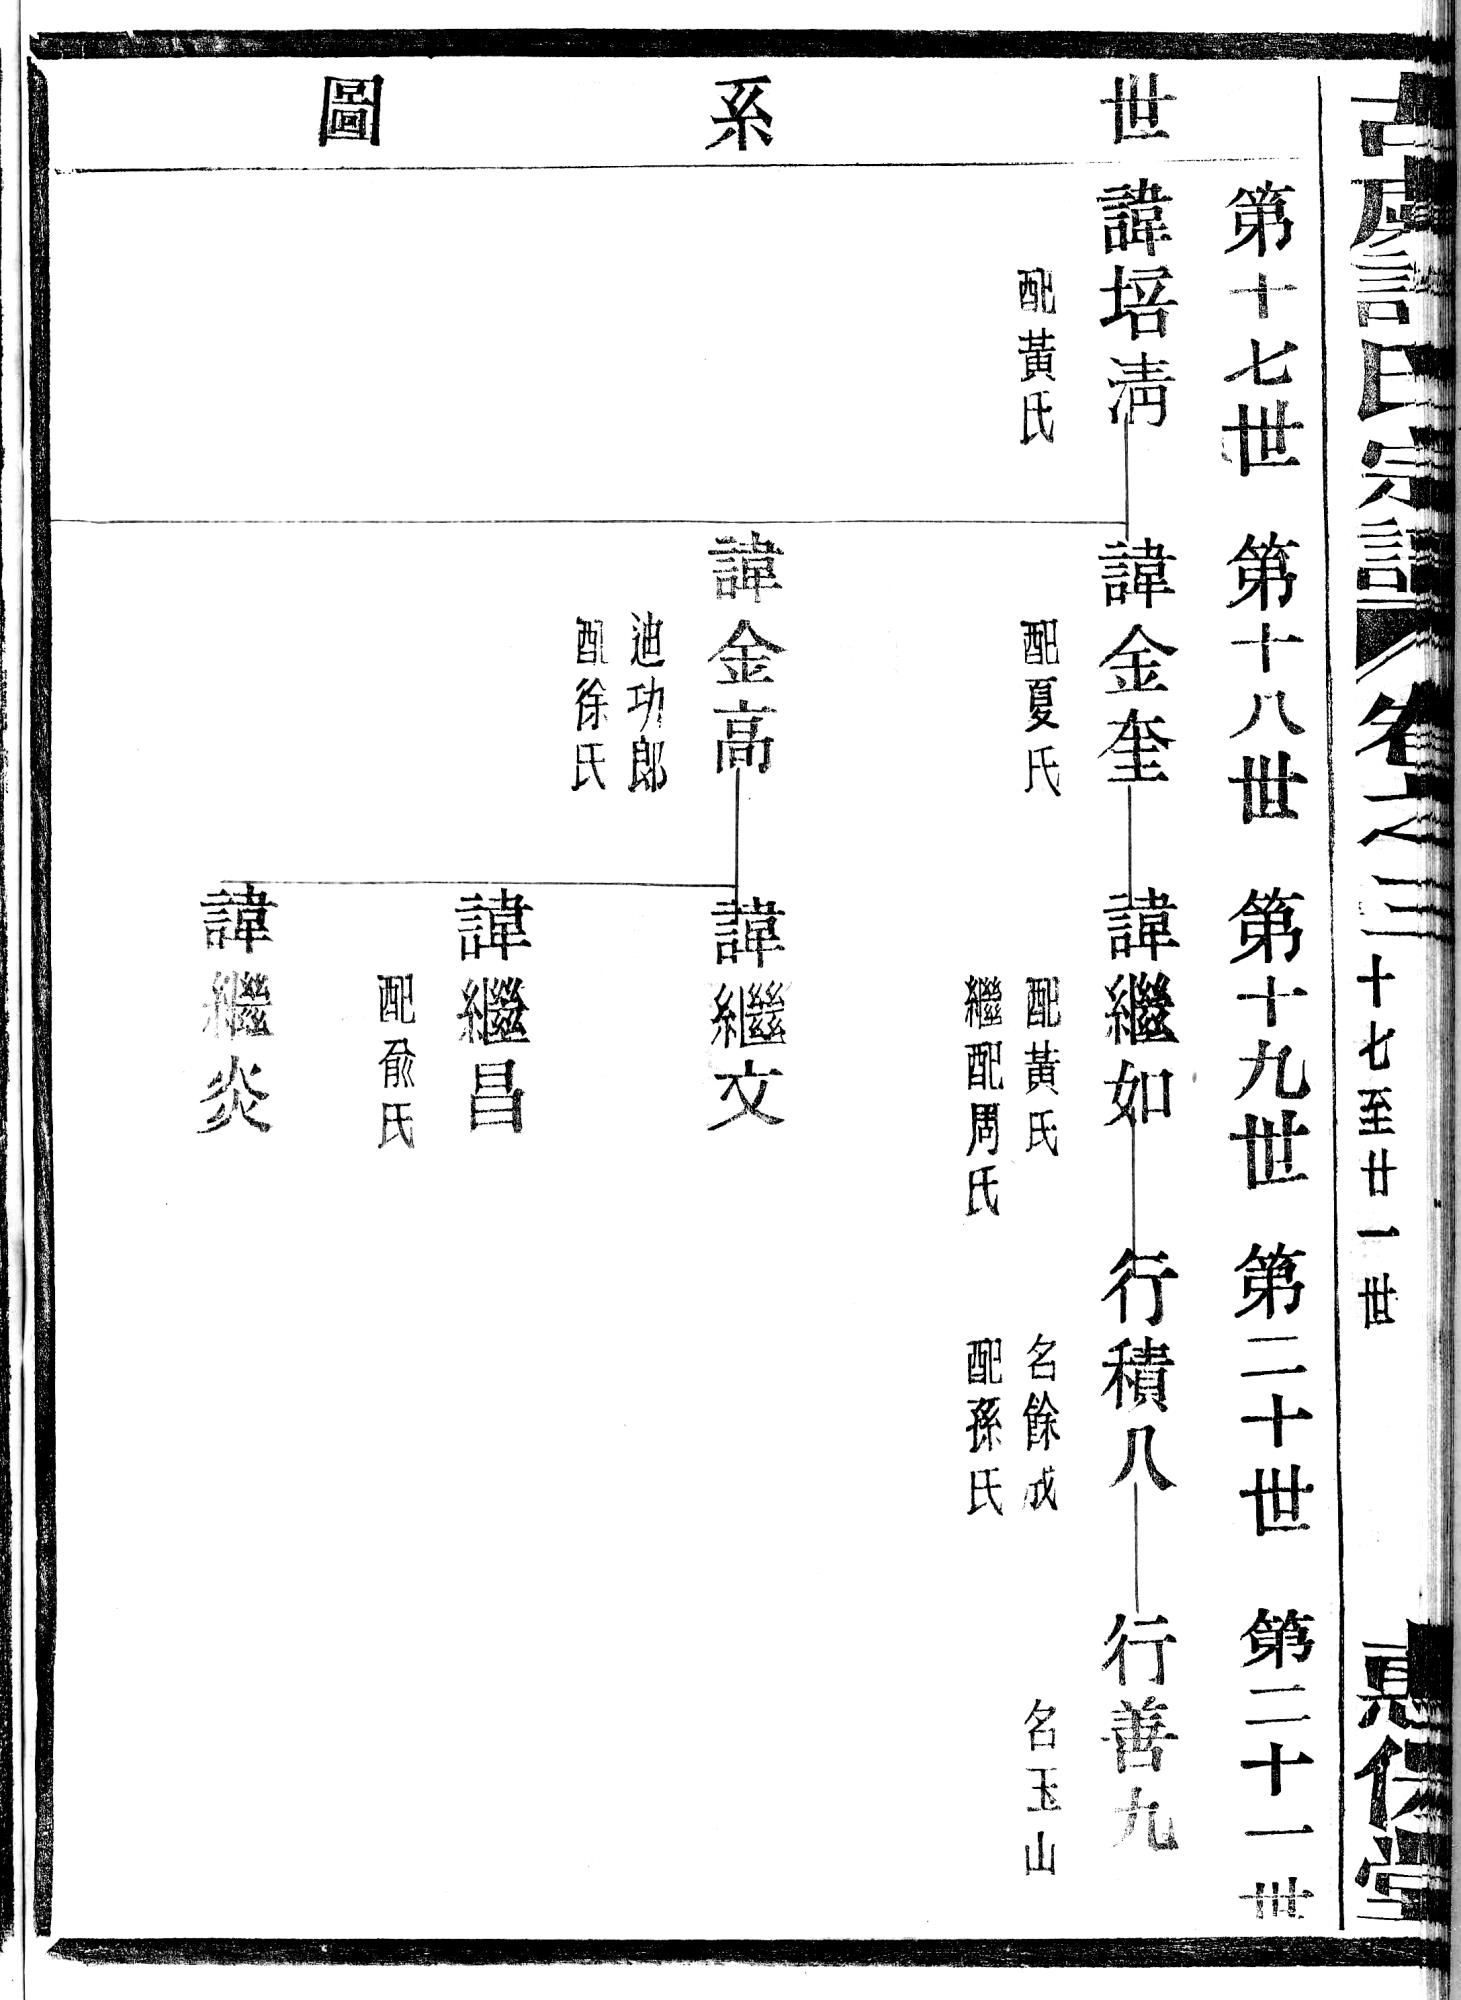 古虞許氏宗譜
卷之三
十七至廿一世
惠伦堂
世系圖
第十七世
第十八世
第十九世
第二十世
第二十一世
諱培淸
配黃氏
諱金奎
配夏氏
諱繼如
配黃氏
繼配周氏
行積八
名餘成
配孫氏
行善九
名玉山
諱金高
迪功郎
配徐氏
諱繼文
諱繼昌
配俞氏
諱繼炎